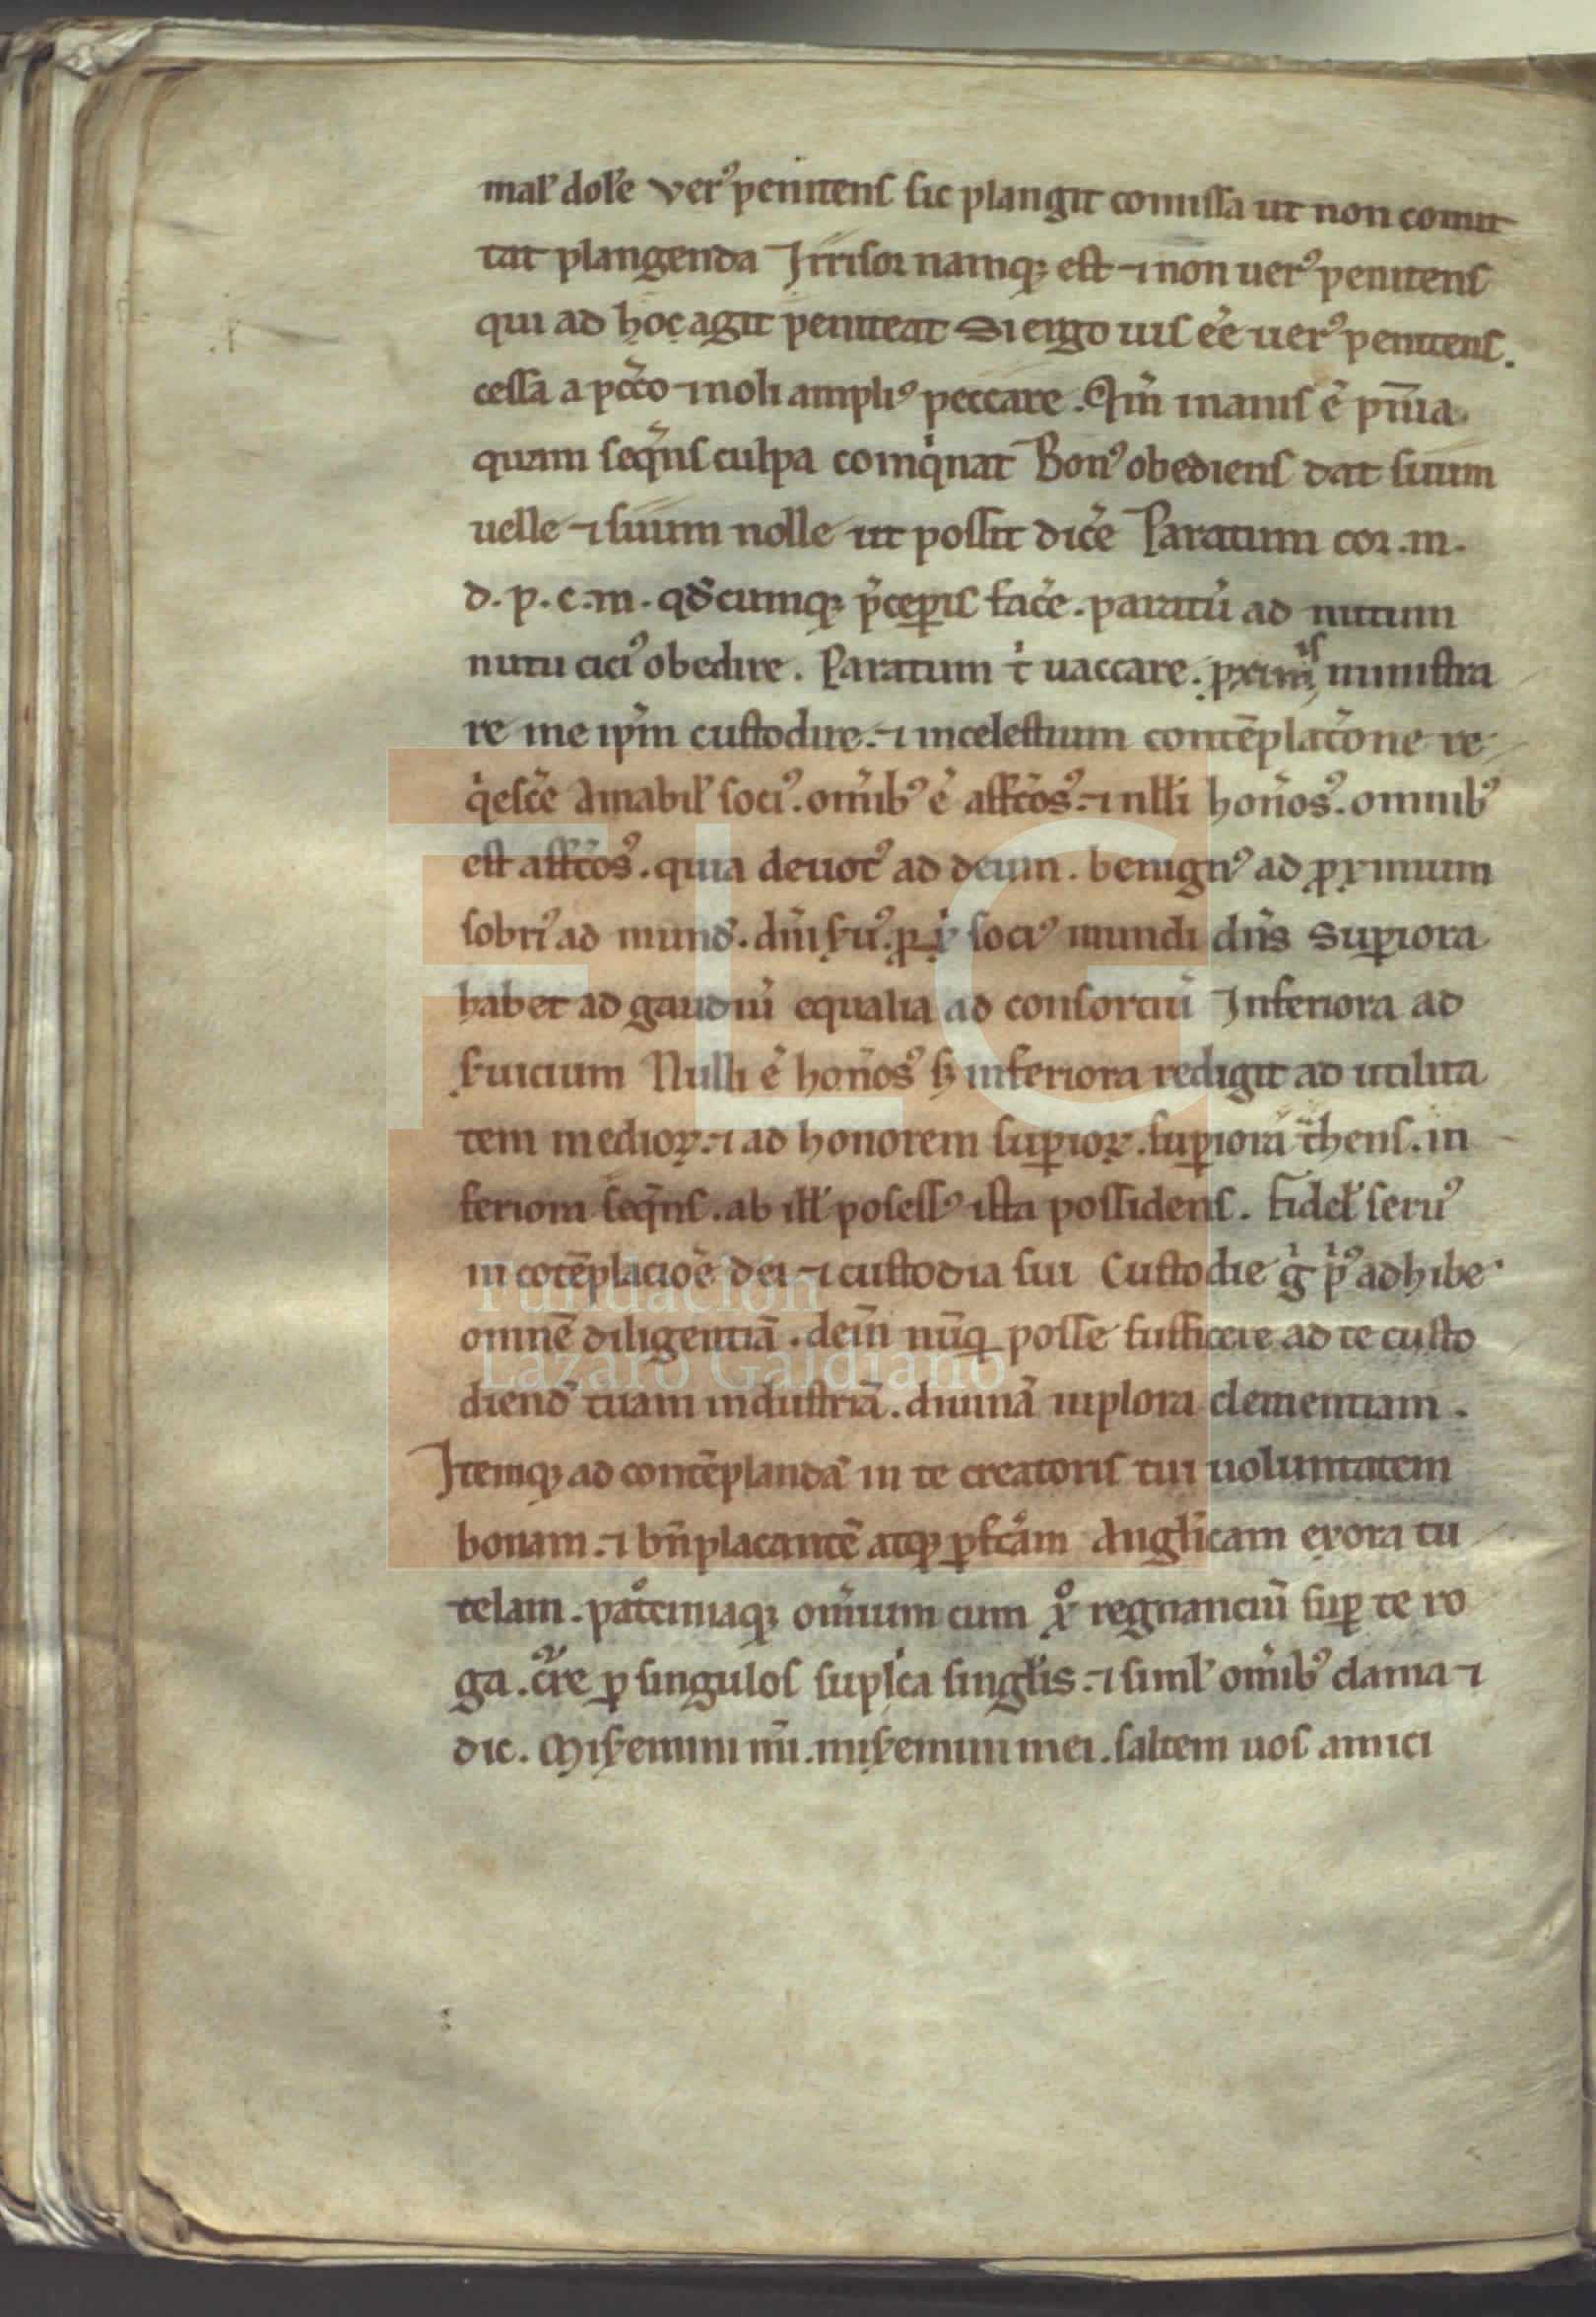 mal' dol'e verꝰ penitens sic plangit comissa ut non comit
tat plangenda Irrisor namq; est ⁊ non uerꝰ penitens
qui ad hoc agit peniteat Si ergo uis ee̅ uerꝰ penitens.
cessa a pcc̅o ⁊ noli ampliꝰ peccare. Qm̅ inanis e̅ pnı̅a
quam seqn̅s culpa coinqͥnat Bonꝰ obediens dat suum
uelle ⁊ suum nolle ut possit dice̅ Paratum cor. m.
d. p. c. m. qd̅cumq; p̅ceꝑis face̅. paratu̅ ad nutum
nutu ciciꝰ obedire. Paratum tͥ uaccare. ꝓximis ministra
re me ip̅m custodire. ⁊ in celestium conte̅platc̅one re
qͥesce̅ Amabil' sociꝰ. om̅ibꝰ e̅ affc̅osꝰ. ⁊ nll̅i hon̅osꝰ. omnibꝰ
est affc̅osꝰ. quia deuotꝰ ad deum. benignꝰ ad ꝓximum
sobriꝰ ad mund̅. dn̅i ẜuꝰ. ꝓxͥ sociꝰ mundi dn̅s Suꝑiora
habet ad gaudiu̅ equalia ad consorciu̅ Inferiora ad
ẜuicium Nulli e̅ hon̅osꝰ ẜꝫ inferiora redigit ad utilita
tem medioꝝ. ⁊ ad honorem suꝑioꝝ. suꝑiora tͣhens. in
feriora seqn̅s. ab ill' posessꝰ ista possidens. Fidel' seruꝰ
in cote̅placioe̅ dei ⁊ custodia sui Custodie gͥ pͥꝰ adhibe
omne̅ diligentia̅. dein̅ nu̅q posse sufficere ad te custo
diend̅ tuam industria̅. diuina̅ inplora clementiam.
Itemq; ad conte̅planda̅ in te creatoris tui uoluntatem
bonam. ⁊ bn̅placante̅ atq; ꝑfca̅m Anglicam exora tu
telam. patͦciniaq; om̅ium cum xͦ regnanciu̅ suꝑ te ro
ga. cͬre ꝑ singulos suplica singl'is. ⁊ siml' om̅ibꝰ clama ⁊
dic. Miẜemini mi̅. miẜemini mei. saltem uos amici
Fundación
Lázaro Galdiano
FLG